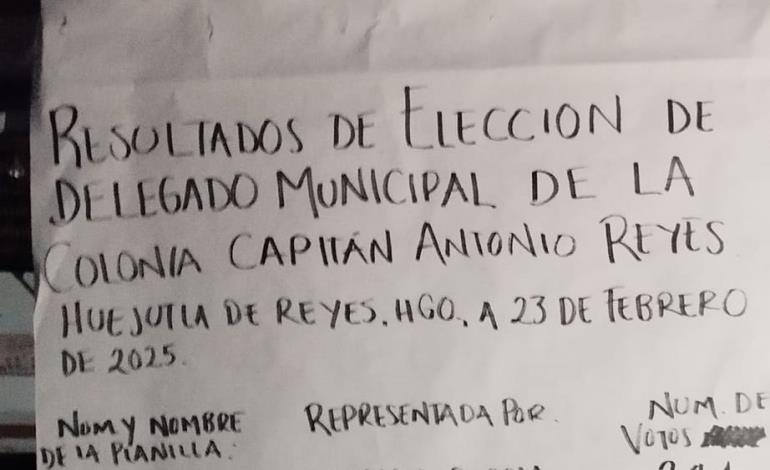 RESULTADOS DE ELECCION DE
DELEGADO MUNICIPAL DE LA
COLONIA CAPITÁN ANTONIO REYES
HUEJUTLA DE REYES, HGO, A 23 DE FEBRERO
DE 2025.
NUM Y NOMBRE REPRESENTADA POR. NUM. DE
DE LA PLANILLA: VOTOS